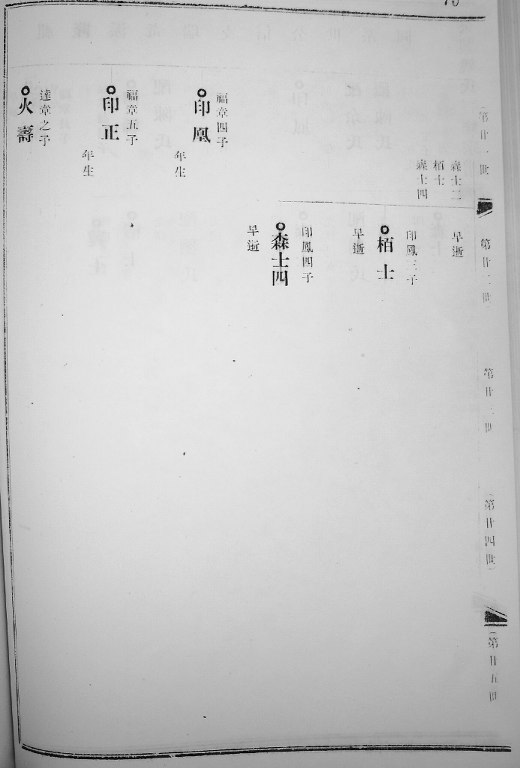 第廿一世
森士二
栢士
森士四
福章四子
印凰
年生
福章五子
印正
年生
達章之子
火壽
第廿二世
早逝
印鳳三子
栢士
早逝
印鳳四子
森士四
早逝
第廿三世
第廿四世
第廿五世